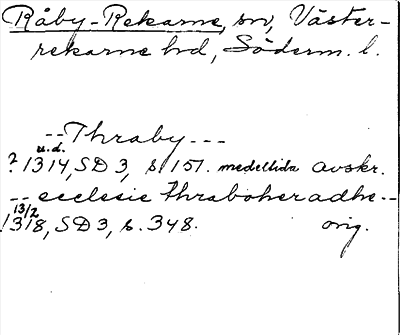 Råby-Rekarne, sn, Väster-
rekarne hd, Söderm. l.
--Thraby---
u.d.
? 1314, SD 3, s. 151. medeltida avskr.
-- ecclesie thraboheradhe --
13/2
1318, SD 3, s. 348. orig.